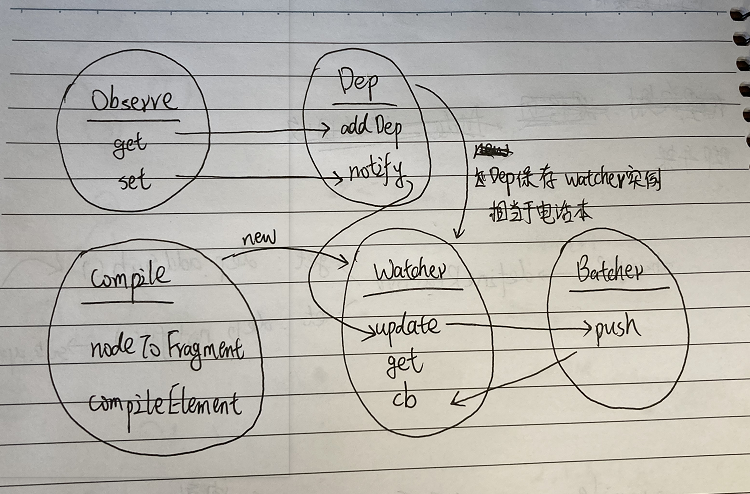 Observe
get
set
Dep
addDep
notify
Dep保存 watcher实例
相当于电话本
new
Compile
nodeToFragment
compileElement
Watcher
update
get
cb
Batcher
push